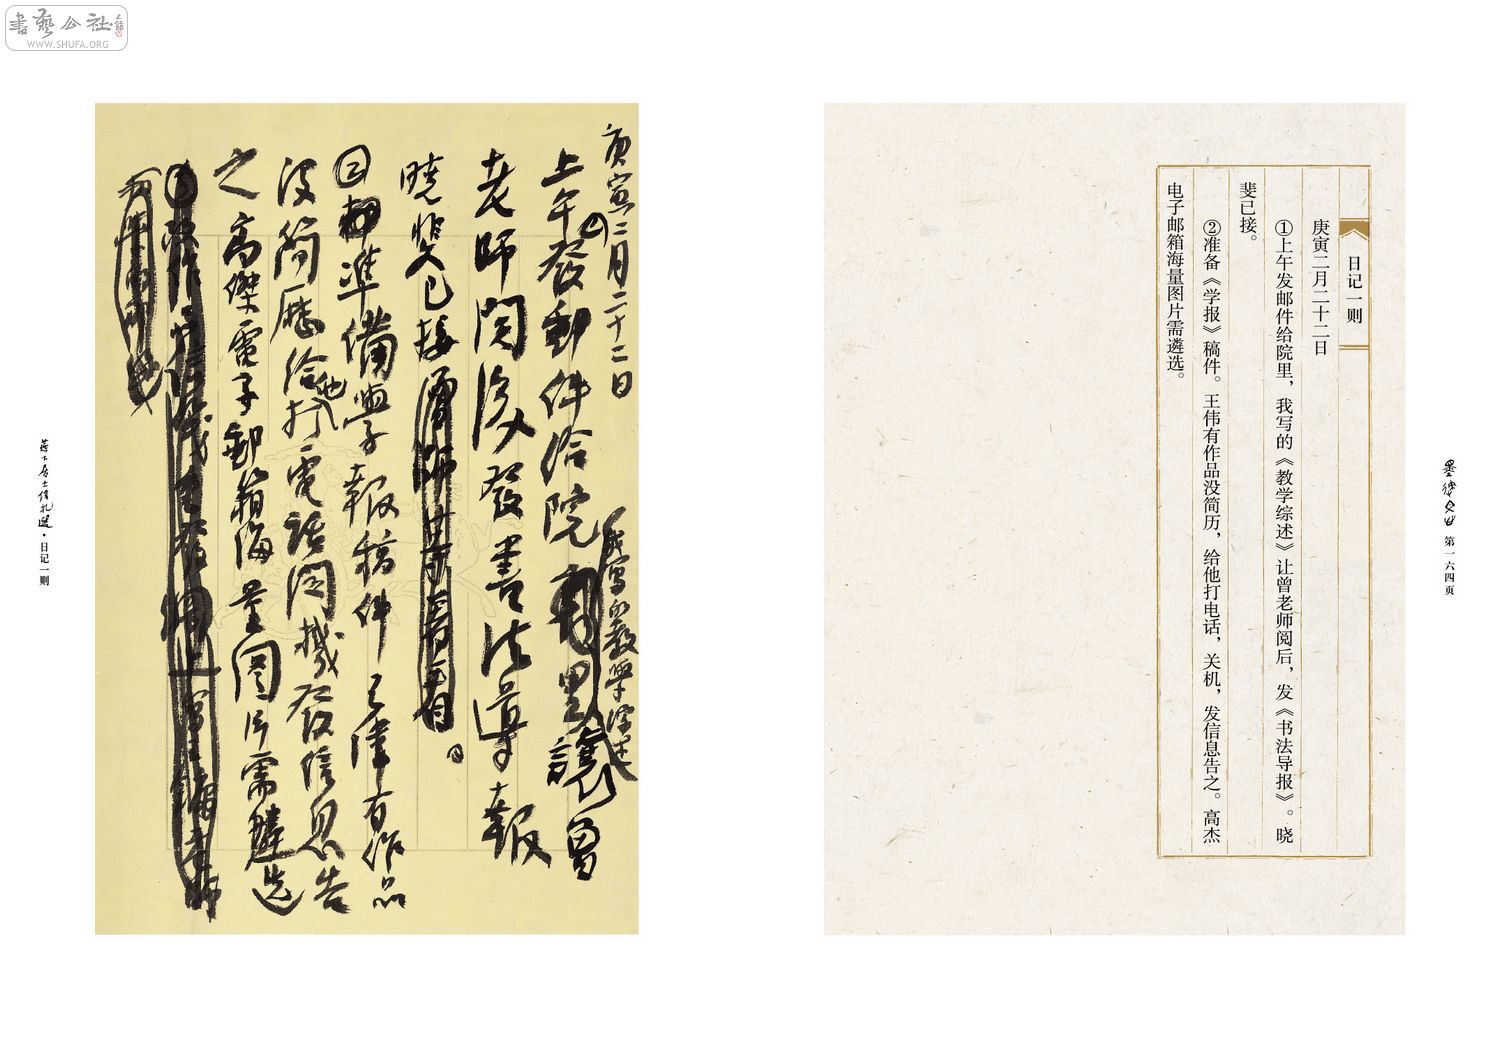 書藝公社
WWW.SHUFA.ORG
日记一则
庚寅二月二十二日
①上午发邮件给院里，我写的《教学综述》让曾老师阅后，发《书法导报》。晓
斐已接。
②准备《学报》稿件。王伟有作品没简历，给他打电话，关机，发信息告之。高杰
电子邮箱海量图片需遴选。
第一六四页
庚寅二月二十二日
上午發郵件给院里讓曾
我写的教學综述
老师阅後發書法導報
晓斐已接
②準備學報稿件王偉有作品
没简歷给他打電话関機發信息告
之高傑電子郵箱海量图片需遴选
·日记一则